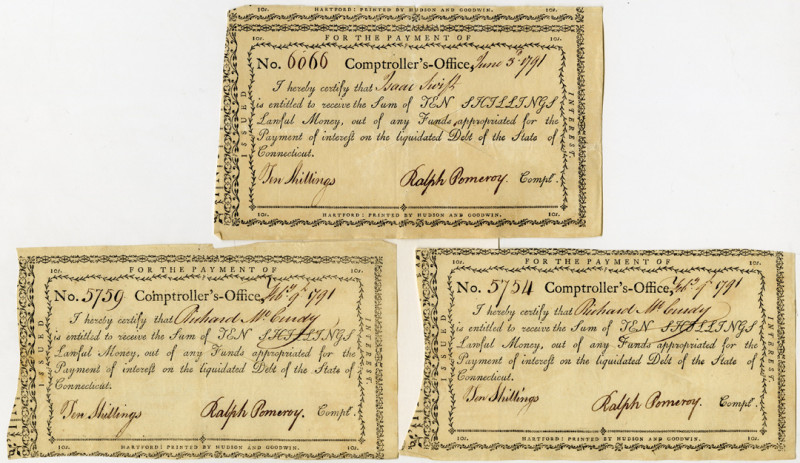 10s. HARTFORD: PRINTED BY HUDSON AND GOODWIN. 10s.
10s. FOR THE PAYMENT OF 10s.
ISSUED
INTEREST.
No. 6066 Comptroller's-Office, June 3d 1791
I hereby certify that Isaac Swift
is entitled to receive the Sum of TEN SHILLINGS
Lawful Money, out of any Funds appropriated for the
Payment of interest on the liquidated Debt of the State of
Connecticut.
Ten Shillings Ralph Pomeroy. Compt.
10s. HARTFORD: PRINTED BY HUDSON AND GOODWIN. 10s.
10s. FOR THE PAYMENT OF 10s.
ISSUED
INTEREST.
No. 5759 Comptroller's-Office, 9th 1791
I hereby certify that Richard McCurdy
is entitled to receive the Sum of TEN SHILLINGS
Lawful Money, out of any Funds appropriated for the
Payment of interest on the liquidated Debt of the State of
Connecticut.
Ten Shillings Ralph Pomeroy. Compt.
10s. HARTFORD: PRINTED BY HUDSON AND GOODWIN. 10s.
10s. FOR THE PAYMENT OF 10s.
ISSUED
INTEREST.
No. 5754 Comptroller's-Office, 9th 1791
I hereby certify that Richard McCurdy
is entitled to receive the Sum of TEN SHILLINGS
Lawful Money, out of any Funds appropriated for the
Payment of interest on the liquidated Debt of the State of
Connecticut.
Ten Shillings Ralph Pomeroy. Compt.
10s. HARTFORD: PRINTED BY HUDSON AND GOODWIN. 10s.